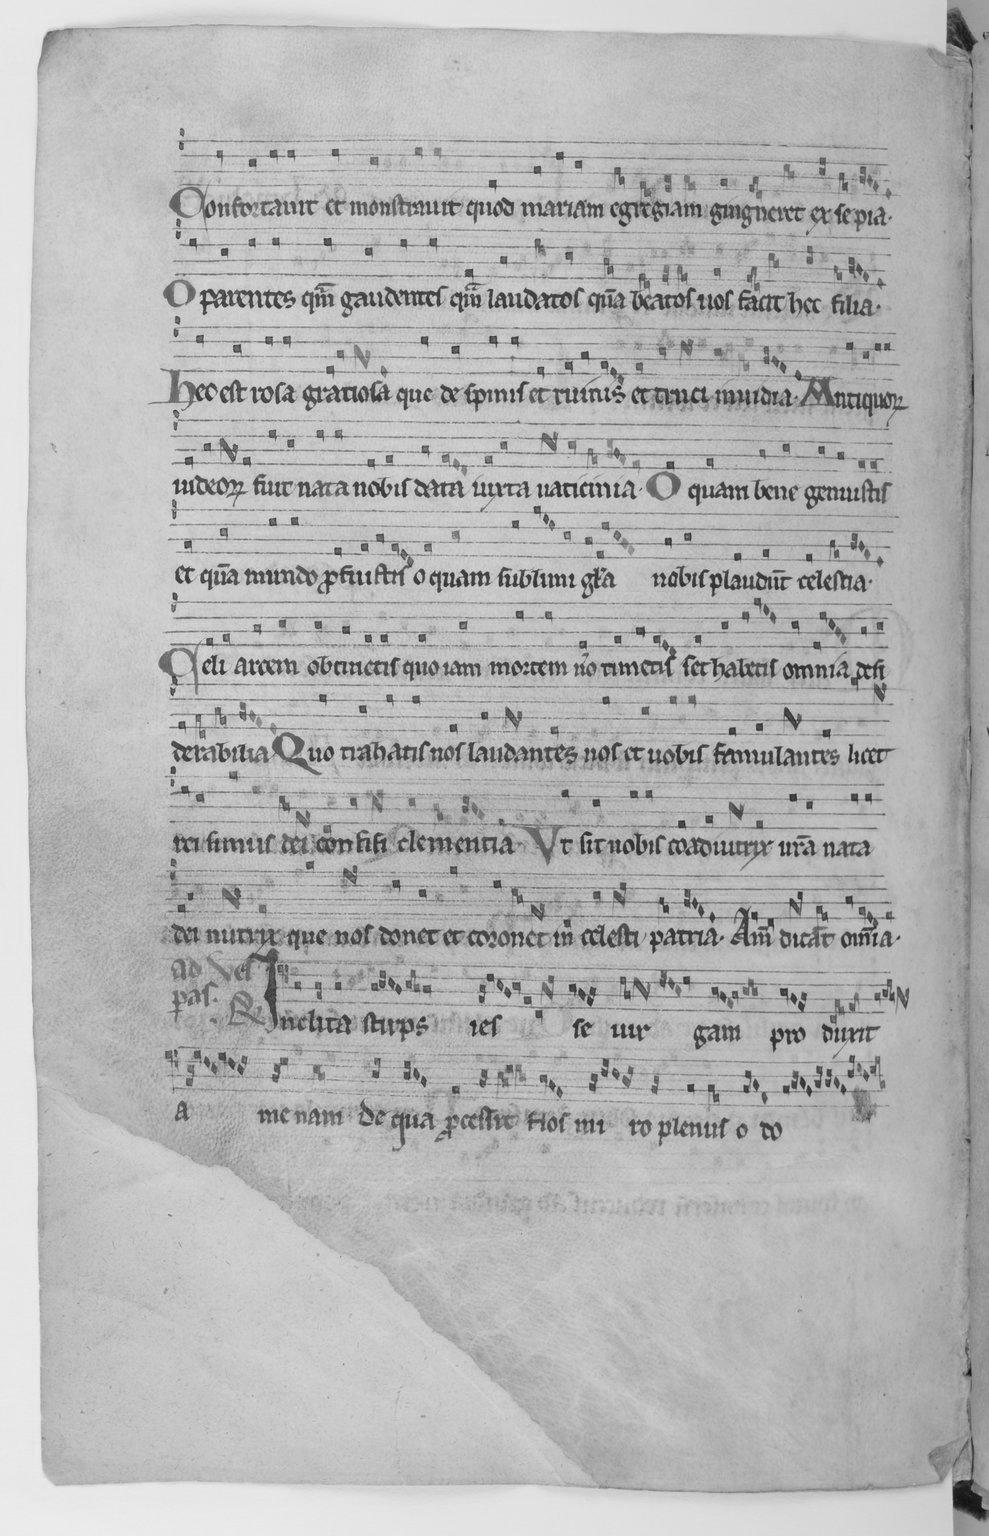 Confortauit et monstrauit quod mariam egregiam gingneret ex se pia.
O parentes qm̄ gaudentes qm̄ laudatos qua beatos uos facit hec filia.
Hec est rosa gratiosa que de spinis et ruinis et truci inuidia. Antiquoꝝ
iudeoꝝ fuit nata nobis data iuxta uaticinia. O quam bene genuistis
et qua mundo ꝓfuistis o quam sublimi gla nobis plaudūt celestia.
Celi arcem obtinetis quo iam mortem nō timetis set habetis omnia desi
derabilia Quo trahatis nos laudantes uos et uobis famulantes licet
rei simus dei confisi clementia. Vt sit nobis coadiutrix ur̄a nata
dei nutrix que nos donet et coronet in celesti patria. Am̄ dicāt om̄ia.
ad Ves
pas. R Inclita stirps ies se uir gam pro duxit
a me nam de qua ꝓcessit flos mi ro plenus o do